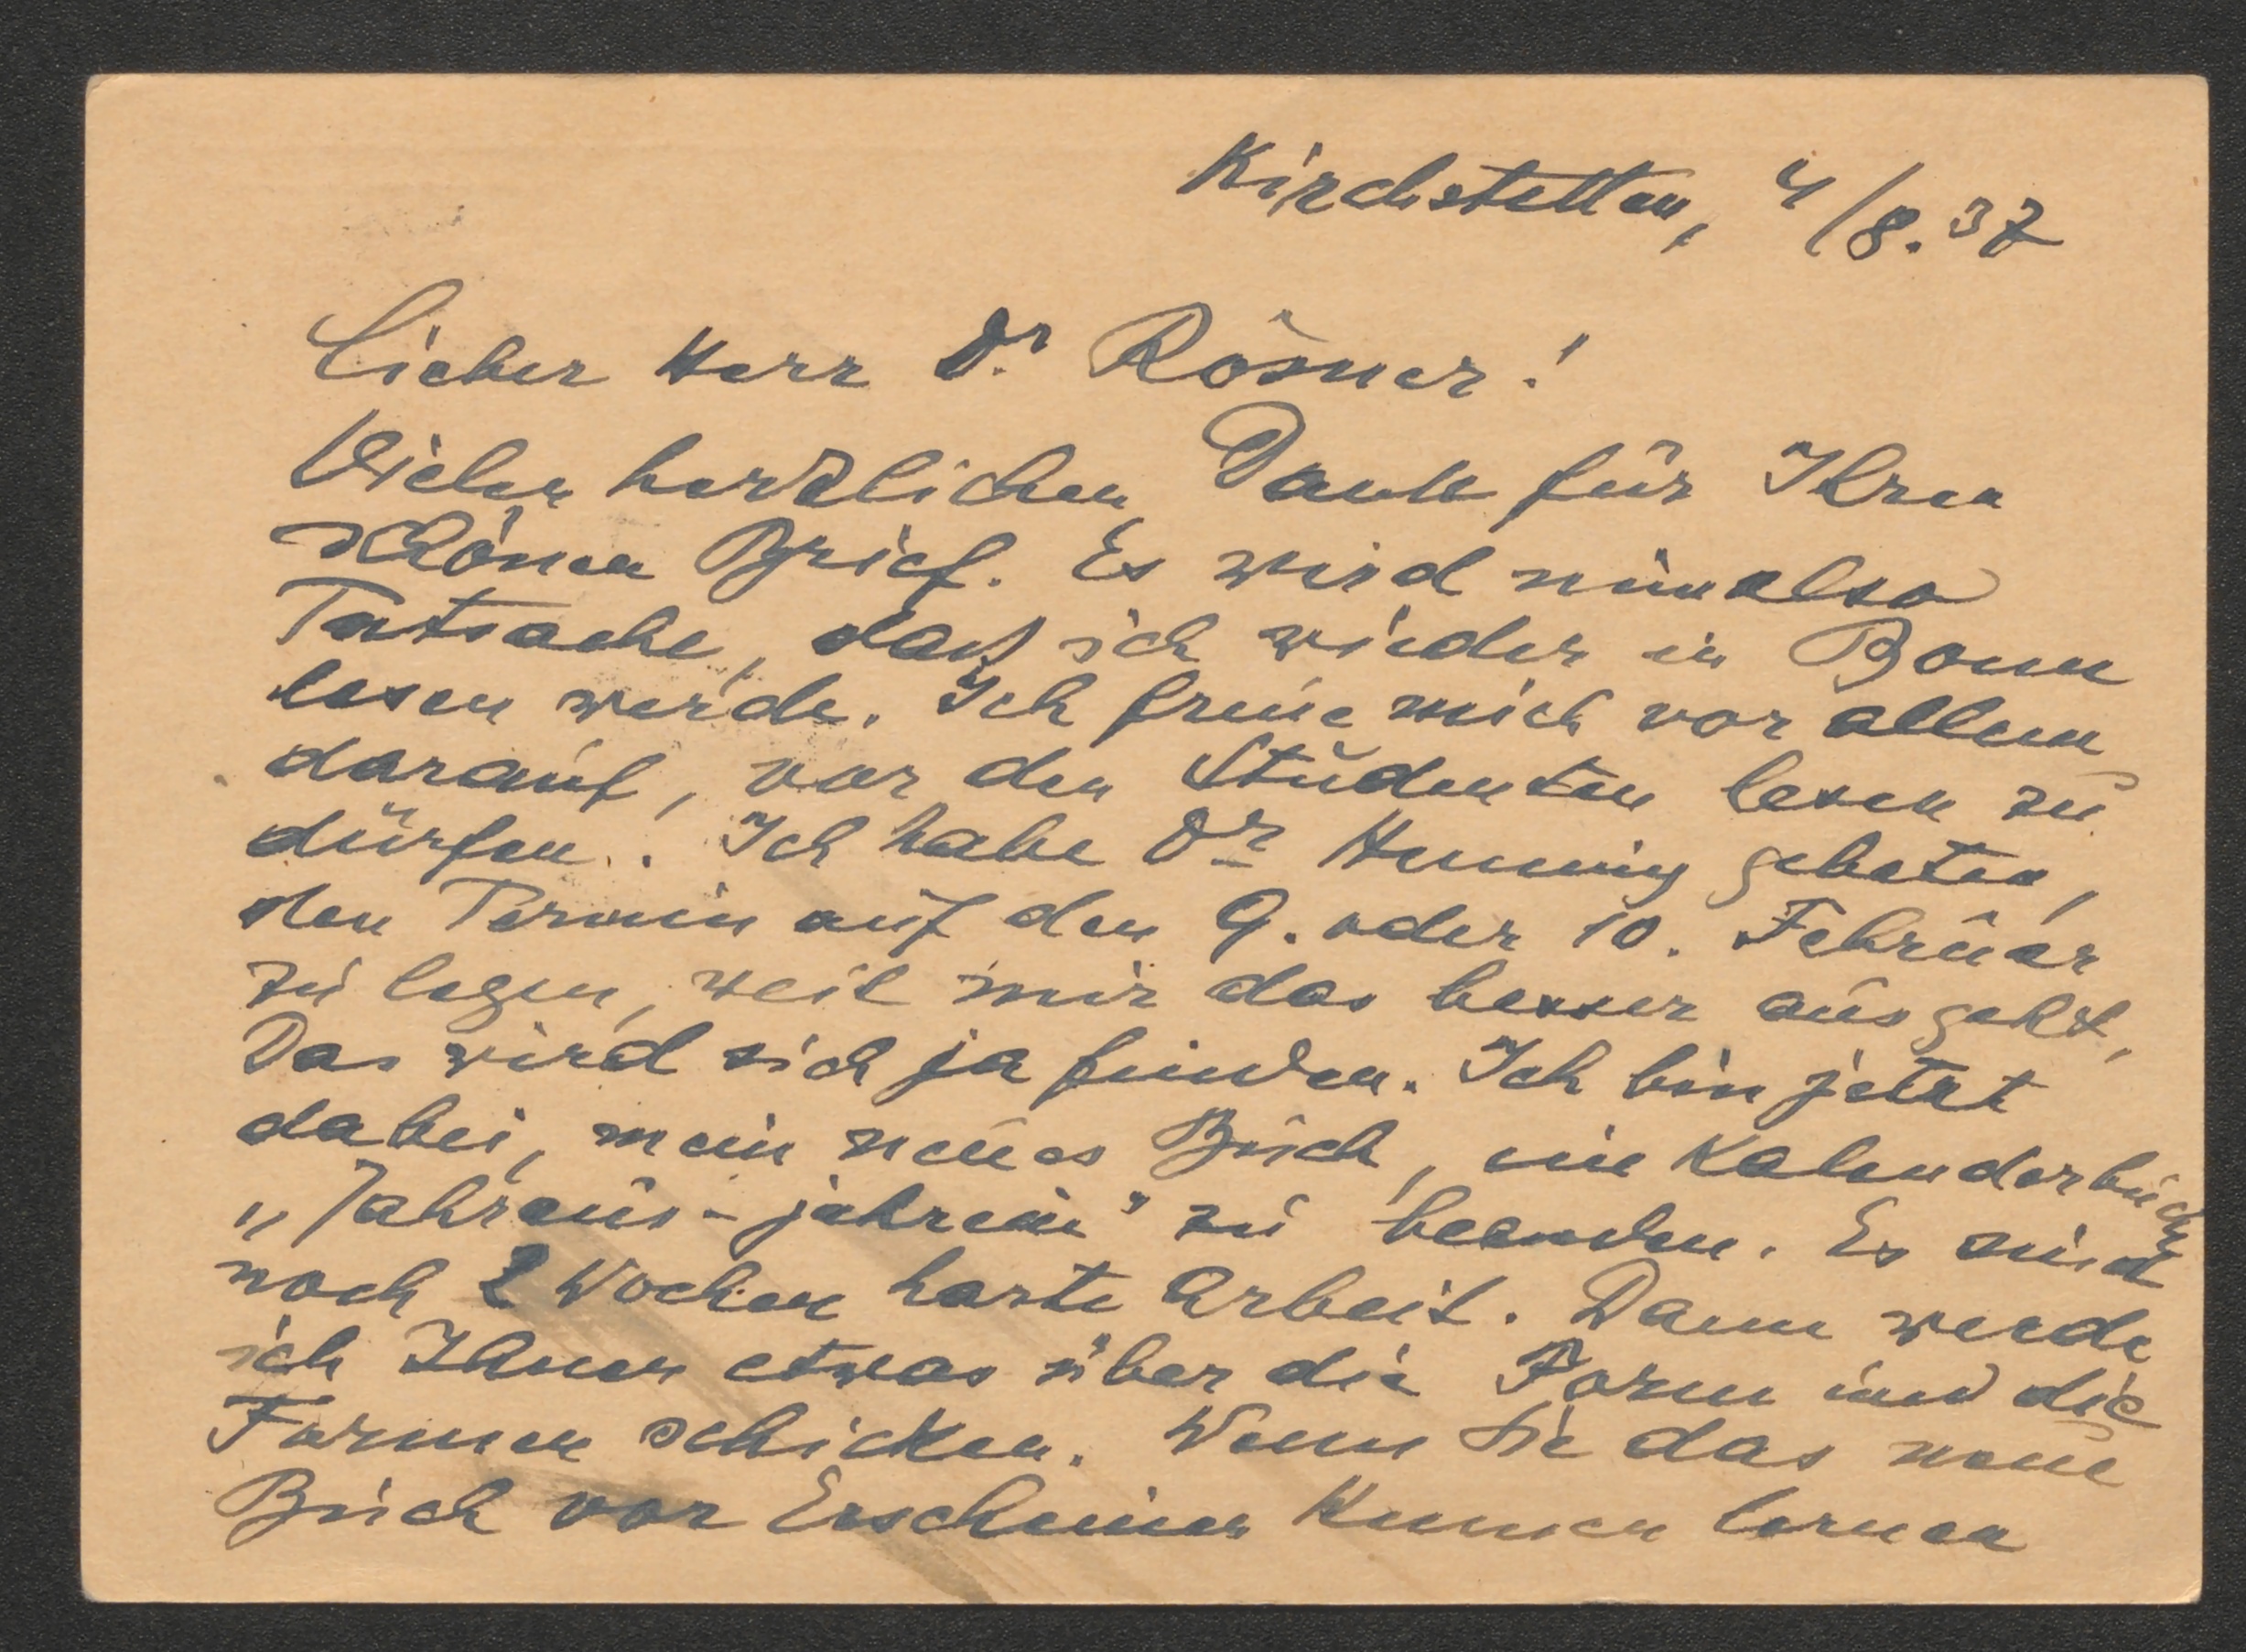 Kirchstetten, 4/8. 37
Lieber Herr Dr. Rösner!
Vielen herzlichen Dank für Ihren
schönen Brief. Es wird nun also
Tatsache, daß ich wieder in Bonn
lesen werde. Ich freue mich vor allem
darauf, vor den Studenten lesen zu
dürfen. Ich habe Dr Hennig gebeten,
den Termin auf den 9. oder 10. Februar
zu legen, weil mir das besser ausgeht,
Das wird sich ja finden. Ich bin jetzt
dabei, mein neues Buch, ein Kalenderbuch
„Jahraus-jahrein" zu beenden. Es sind
noch 2 Wochen harte Arbeit. Dann werde
ich Ihnen etwas über die Form und die
Formen schicken. Wenn Sie das neue
Buch vor Erscheinen kennen lernen